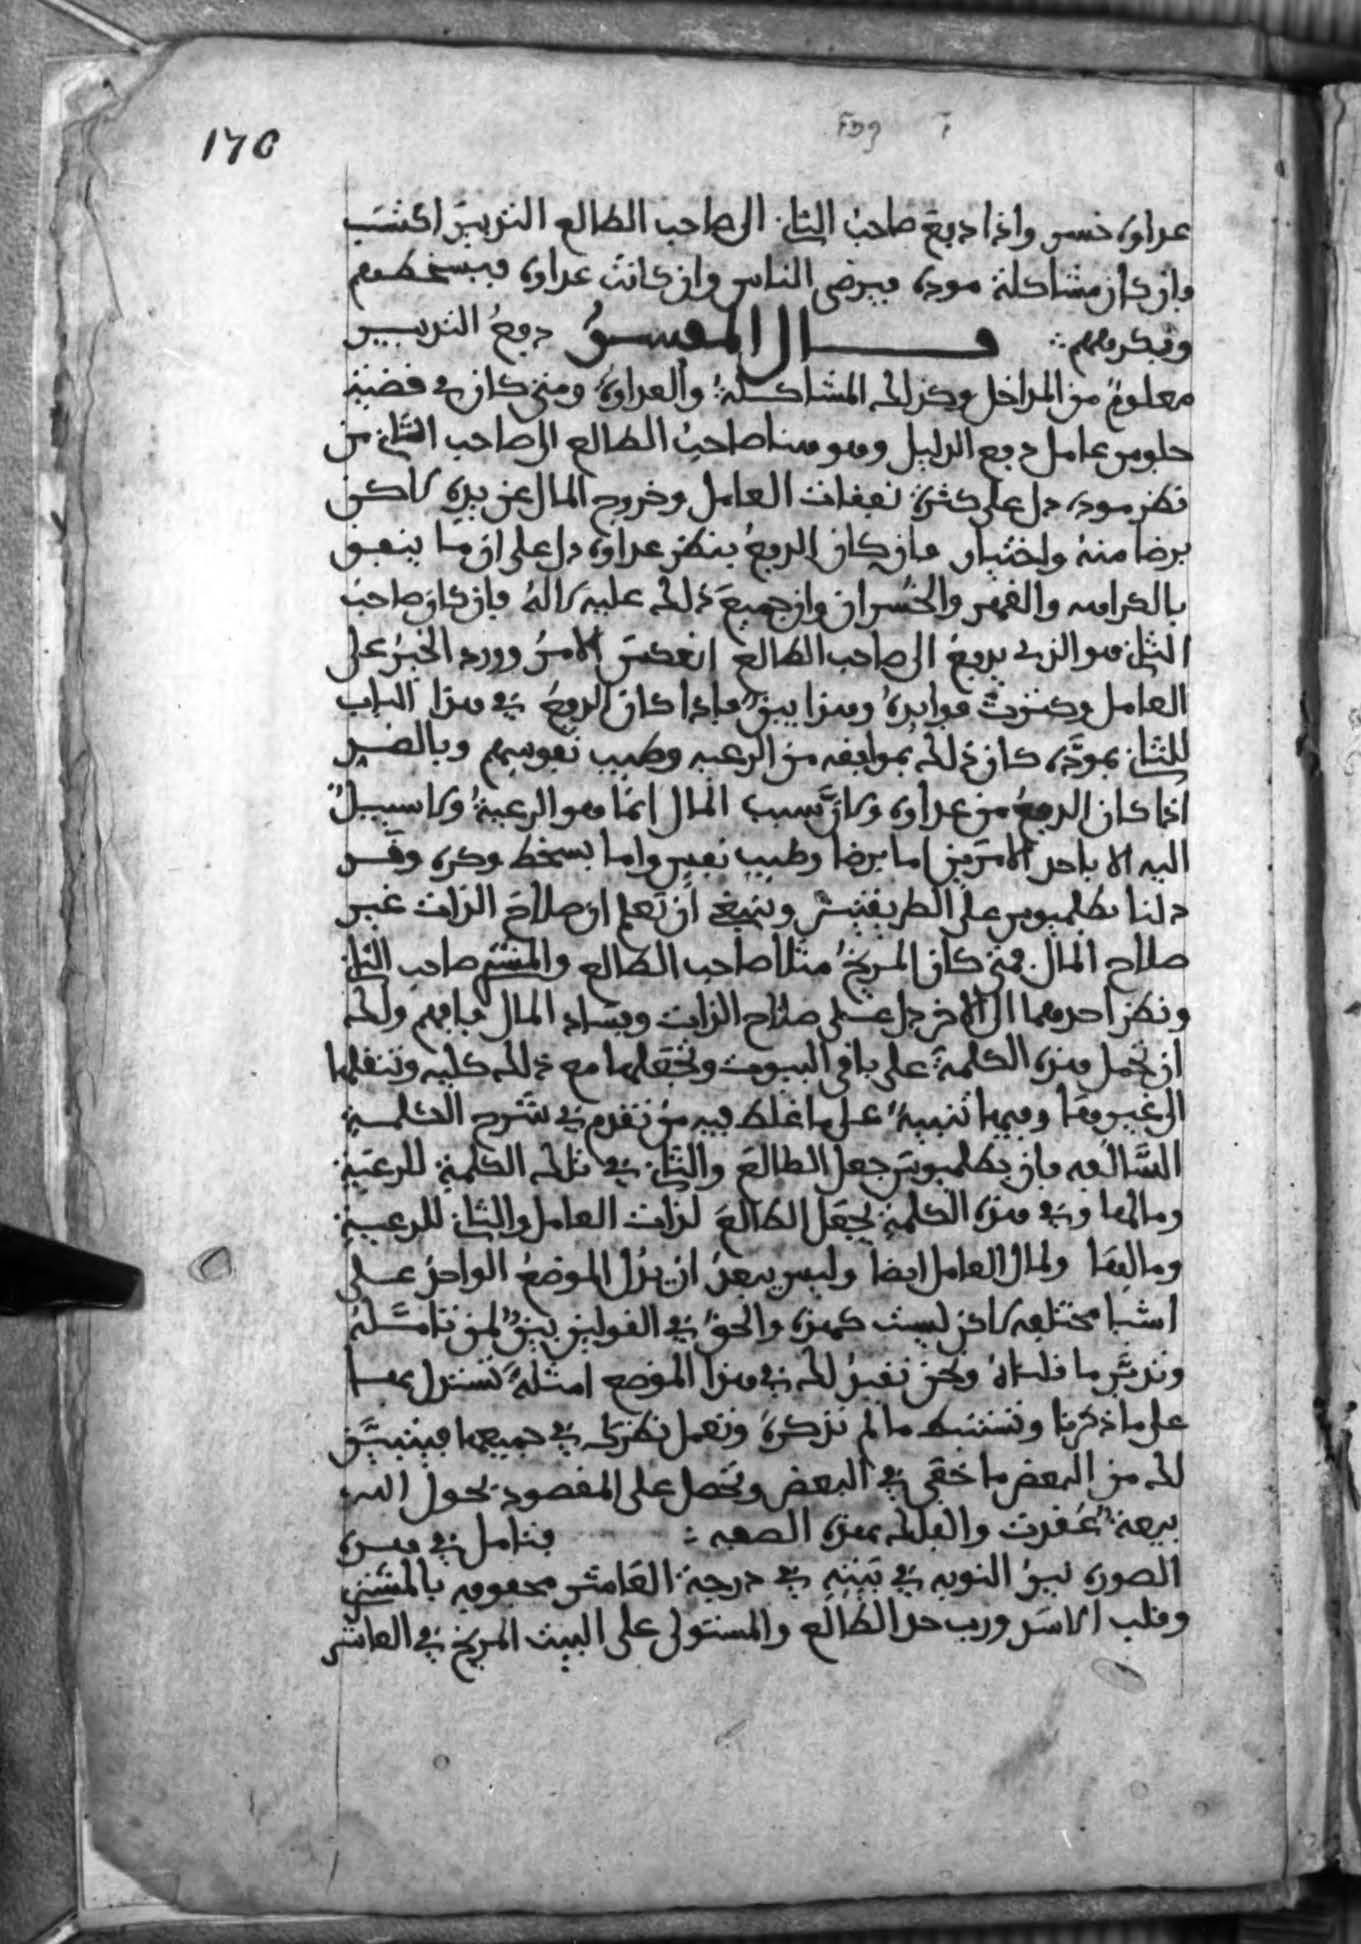 170
عداوة خسر واذا دفع صاحب الثاني الى صاحب الطالع التدبير اكتسب
فان كان مشاكلة مودة فبرضى الناس وان كانت عداوة فبسخطهم
وبكرههم قال المفسر دفع التدبير
معلوم من المداخل وكذلك المشاكلة والعداوة ومتى كان في قضية
جلوس عامل دفع الدليل وهو هنا صاحب الطالع الى صاحب الثاني من
نظر مودة دل على كثرة نفقات العامل وخروج المال عن يده لاكن
برضا منه واختيار فان كان الدفع بنظر عداوة دل على ان ما ينفق
بالكراهه والقهر والخسران وان جميع ذلك عليه لا له فان كان صاحب
الثاني هو الذي يدفع الى صاحب الطالع انعكس الامر وورد الخبر على
العامل وكثرت فوايده وهذا بين فاذا كان الدفع في هذا الباب
للثاني بمودة كان ذلك بموافقه من الرعيه وطيب نفوسهم وبالضد
اذا كان الدفع من عداوة ولان سبب المال انما هو الرعية ولا سبيل
اليه الا باحد الامرين اما برضا وطيب نفس واما بسخط وكره وقد
دلنا بطلميوس على الطريقتين وينبغي ان تعلم ان صلاح الذات غير
صلاح المال فمتى كان المريخ مثلا صاحب الطالع والمشتري صاحب الثاني
ونظر احدهما الى الاخر دل على صلاح الذات وفساد المال فافهم ولك
ان تحمل هذه الكلمة على باقي البيوت وتجعلها مع ذلك كليه وتنقلها
الى غيرها وفيها تنبيه على ما غلط فيه من تقدم في شرح الكلمة
السالفه فان بطلميوس جعل الطالع والثاني في تلك الكلمة للرعية
ومالها وفي هذه الكلمة يجعل الطالع لذات العامل والثاني للرعية
ومالها ولمال العامل ايضا وليس يبعد ان يدل الموضع الواحد على
اشيا مختلفه لاكن ليست كهذه والحق في القولين بين لمن تامله
وتدبر ما قلناه ونحن نفيد لك في هذا الموضع امثلة تستدل بها
على ما ذكرنا وتستنبط ما لم نذكره وتعمل نظرك في جميعها فيتبين
لك من البعض ما خفي في البعض وتحصل على المقصود بحول الله
بيعة عقدت والفلك بهذه الصفه فتامل في هذه
الصورة نير النوبه في بيته في درجة العاشر محفوفه بالمشتري
وقلب الاسد ورب حد الطالع والمستولى على البيت المريخ في العاشر